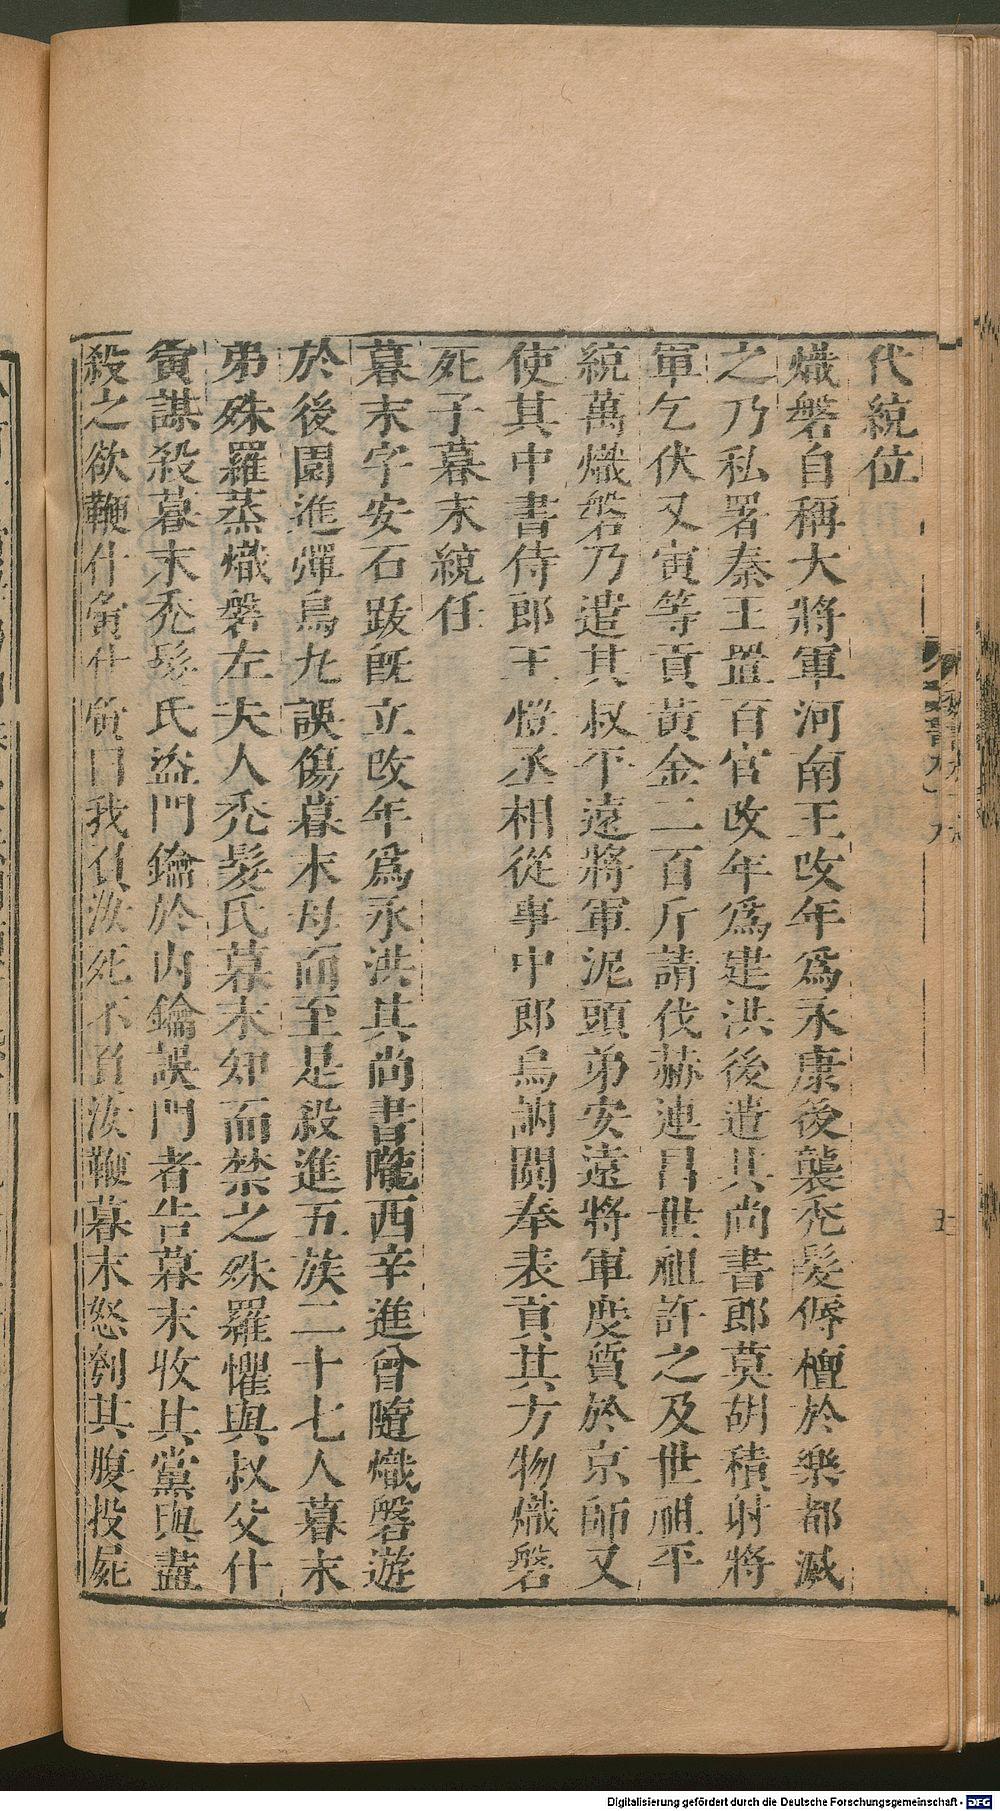 代統位
熾磐自稱大將軍河南王改年爲永康後襲禿髮傉檀於樂都滅
之乃私署秦王置百官改年爲建洪後遣其尚書郎莫胡積射將
軍乞伏又寅等貢黃金二百斤請伐赫連昌世祖許之及世祖平
統萬熾磐乃遣其叔平遠將軍泥頭弟安遠將軍度質於京師又
使其中書侍郎王愷丞相從事中郎烏訥闐奉表貢其方物熾磐
死子暮末統任
暮末字安石跋既立改年爲永洪其尚書隴西辛進曾隨熾磐遊
於後園進彈鳥丸誤傷暮末母而至是殺進五族二十七人暮末
弟殊羅蒸熾磐左夫人禿髮氏暮末知而禁之殊羅懼與叔父什
寅謀殺暮末禿髮氏盜門鑰於內鑰誤門者告暮末收其黨與盡
殺之欲鞭什寅什寅曰我負汝死不負汝鞭暮末怒刳其腹投屍
Digitalisierung gefördert durch die Deutsche Forschungsgemeinschaft - DFG